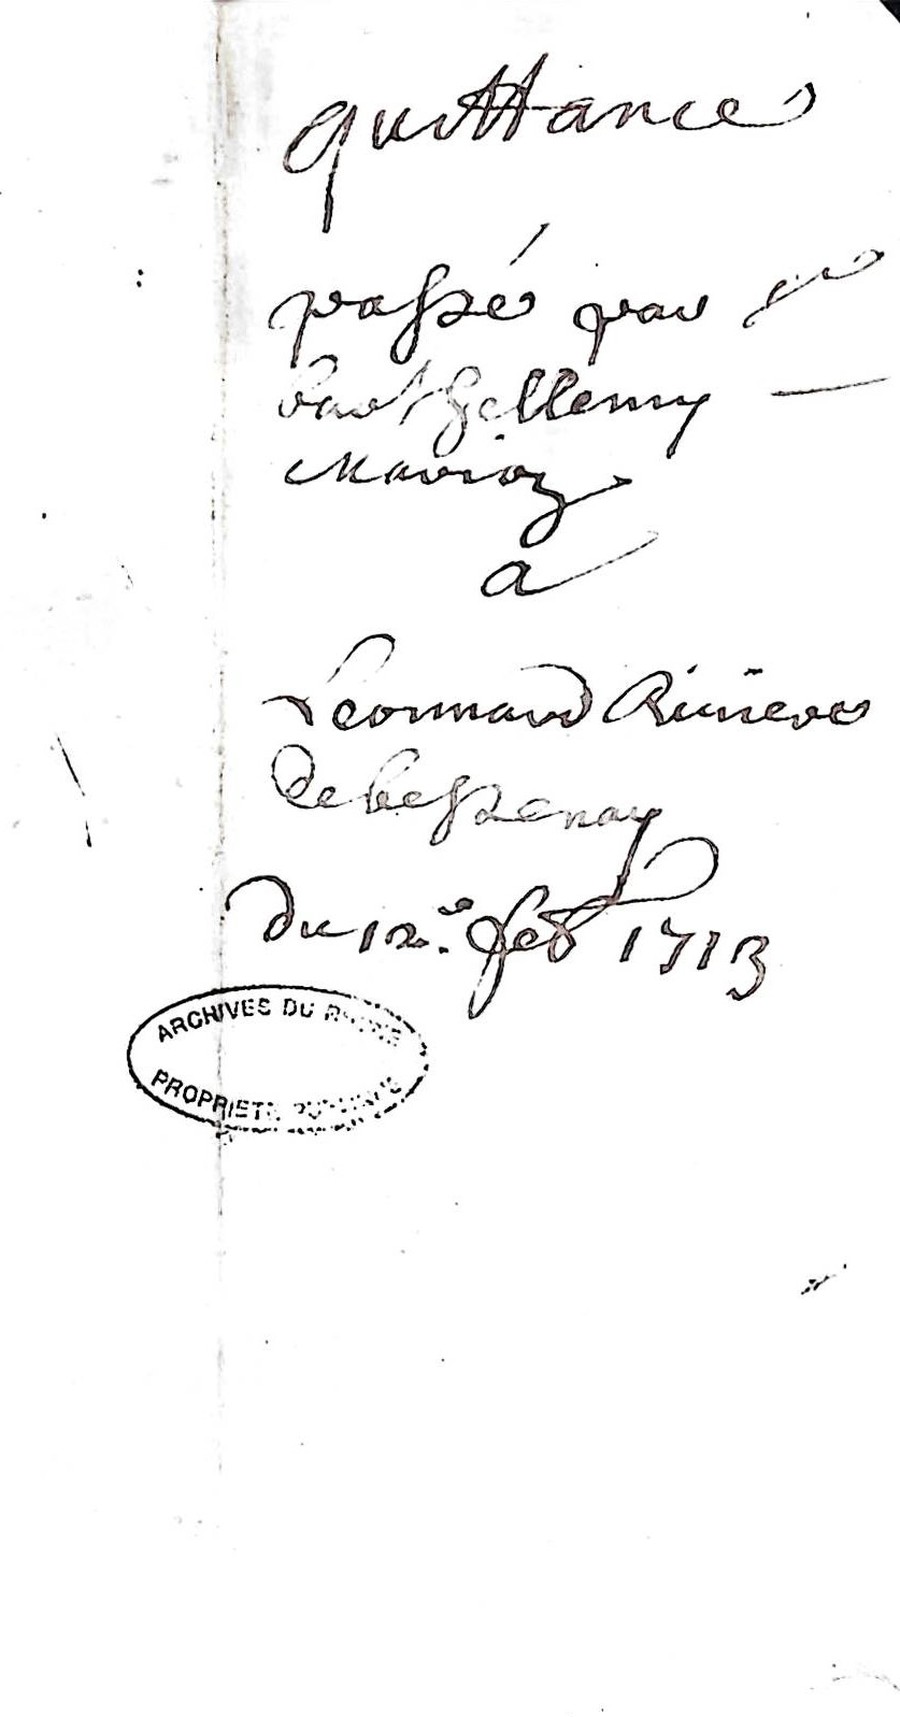 quittance
passé par sr
barthellemy —
Marioz
a
Leonnard Riuiere
de bessenay
du 12e. feb 1713
ARCHIVES DU RHONE
PROPRIETE PUBLIQUE